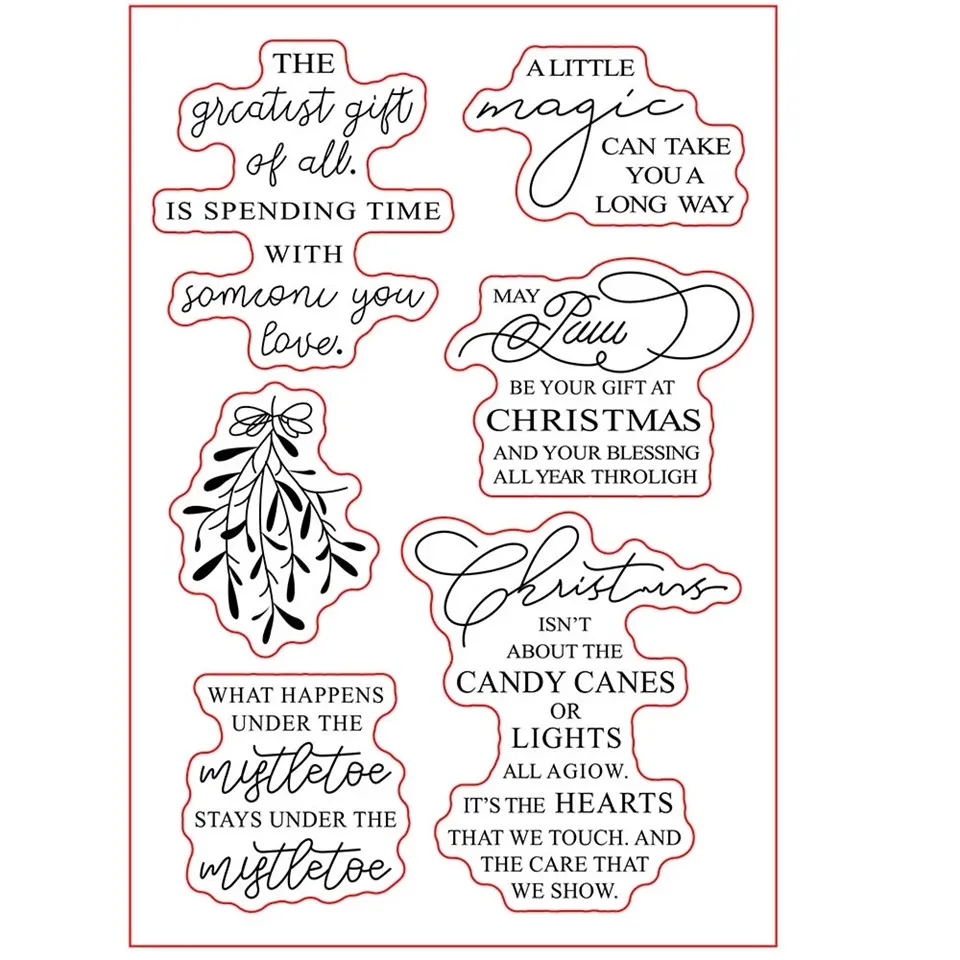 THE
greatest gift
of all.
IS SPENDING TIME
WITH
someone you
love.
A LITTLE
magic
CAN TAKE
YOU A
LONG WAY
MAY
BE YOUR GIFT AT
CHRISTMAS
AND YOUR BLESSING
ALL YEAR THROLIGH
Christmas
ISN'T
ABOUT THE
CANDY CANES
OR
LIGHTS
ALL AGIOW.
IT'S THE HEARTS
THAT WE TOUCH. AND
THE CARE THAT
WE SHOW.
WHAT HAPPENS
UNDER THE
mistletoe
STAYS UNDER THE
mistletoe